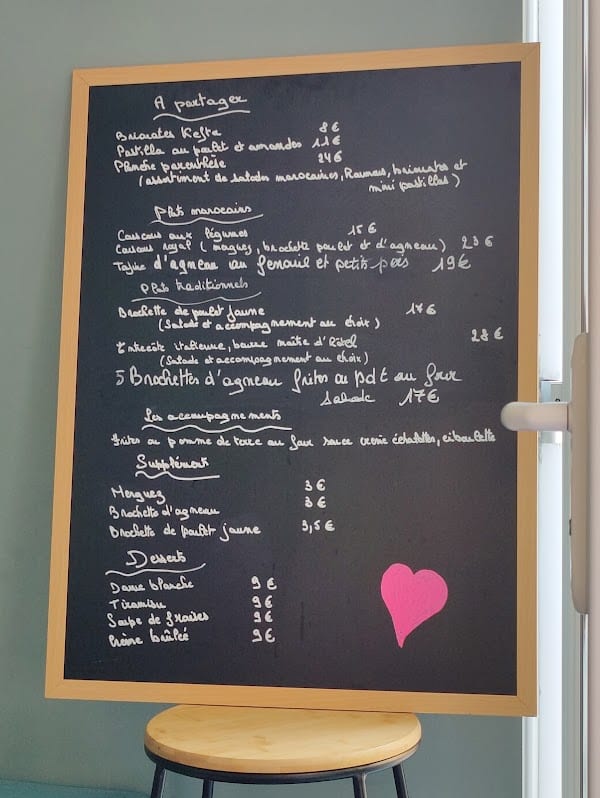 A partager
Briouates Kefta 8€
Pastilla au poulet et amandes 11€
Planche parenthèse 24€
(assortiment de salades marocaines, Houmous, briouates et
mini pastillas)
Plats marocains
Couscous aux légumes 15€
Couscous royal (merguez, brochette poulet et d'agneau) 23€
Tajine d'agneau au fenouil et petits pois 19€
Plats traditionnels
Brochette de poulet jaune 17€
(Salade et accompagnement au choix)
Entrecôte italienne, beurre maitre d'Hôtel 28€
(Salade et accompagnement au choix)
5 Brochettes d'agneau frites ou pdt au four
salade 17€
Les accompagnements
Frites ou pomme de terre au four sauce crème échalottes, ciboulette
Supplément
Merguez 3€
Brochette d'agneau 3€
Brochette de poulet jaune 3,5€
Desserts
Dame blanche 9€
Tiramisu 9€
Soupe de fraises 9€
Crème brûlée 9€